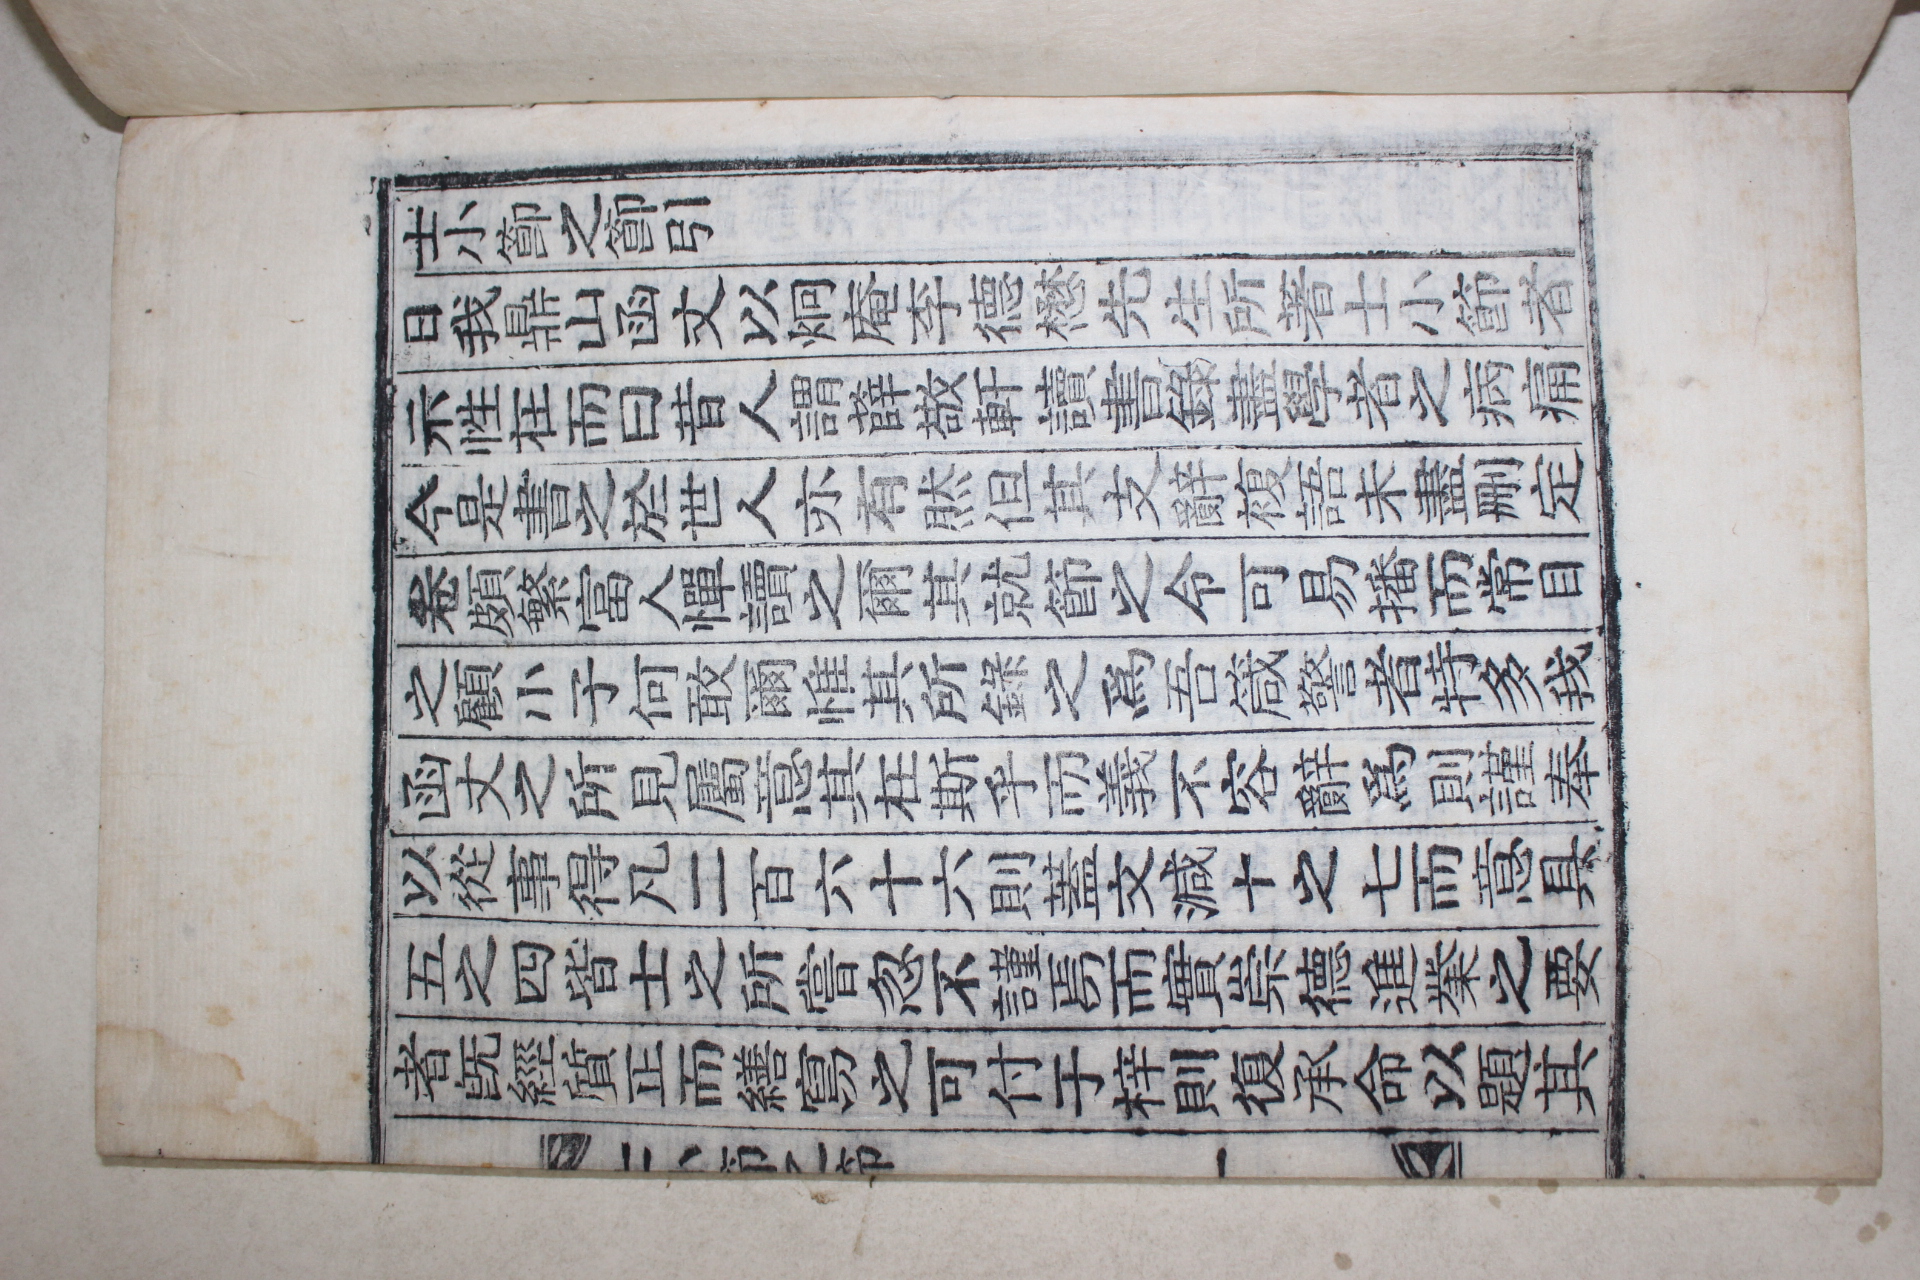 士小節之節引
日我鼎山函丈以炯庵李德懋先生所著士小節者
示性在而曰昔人謂薛敬軒讀書錄盡學者之病痛
今是書之於世人亦有然但其支辭複語未盡刪定
卷頗繁富人憚讀之爾其就節之令可易播而常目
之顧小子何敢爾惟其所錄之爲吾箴警者特多我
函丈之所見屬意其在斯乎而義不容辭爲則謹奉
以從事得凡二百六十六則蓋文減十之七而意具
五之四皆士之所嘗忽不謹焉而實崇德進業之要
者旣經質正而繕寫之可付于梓則復承命以題其
士小節之節 一